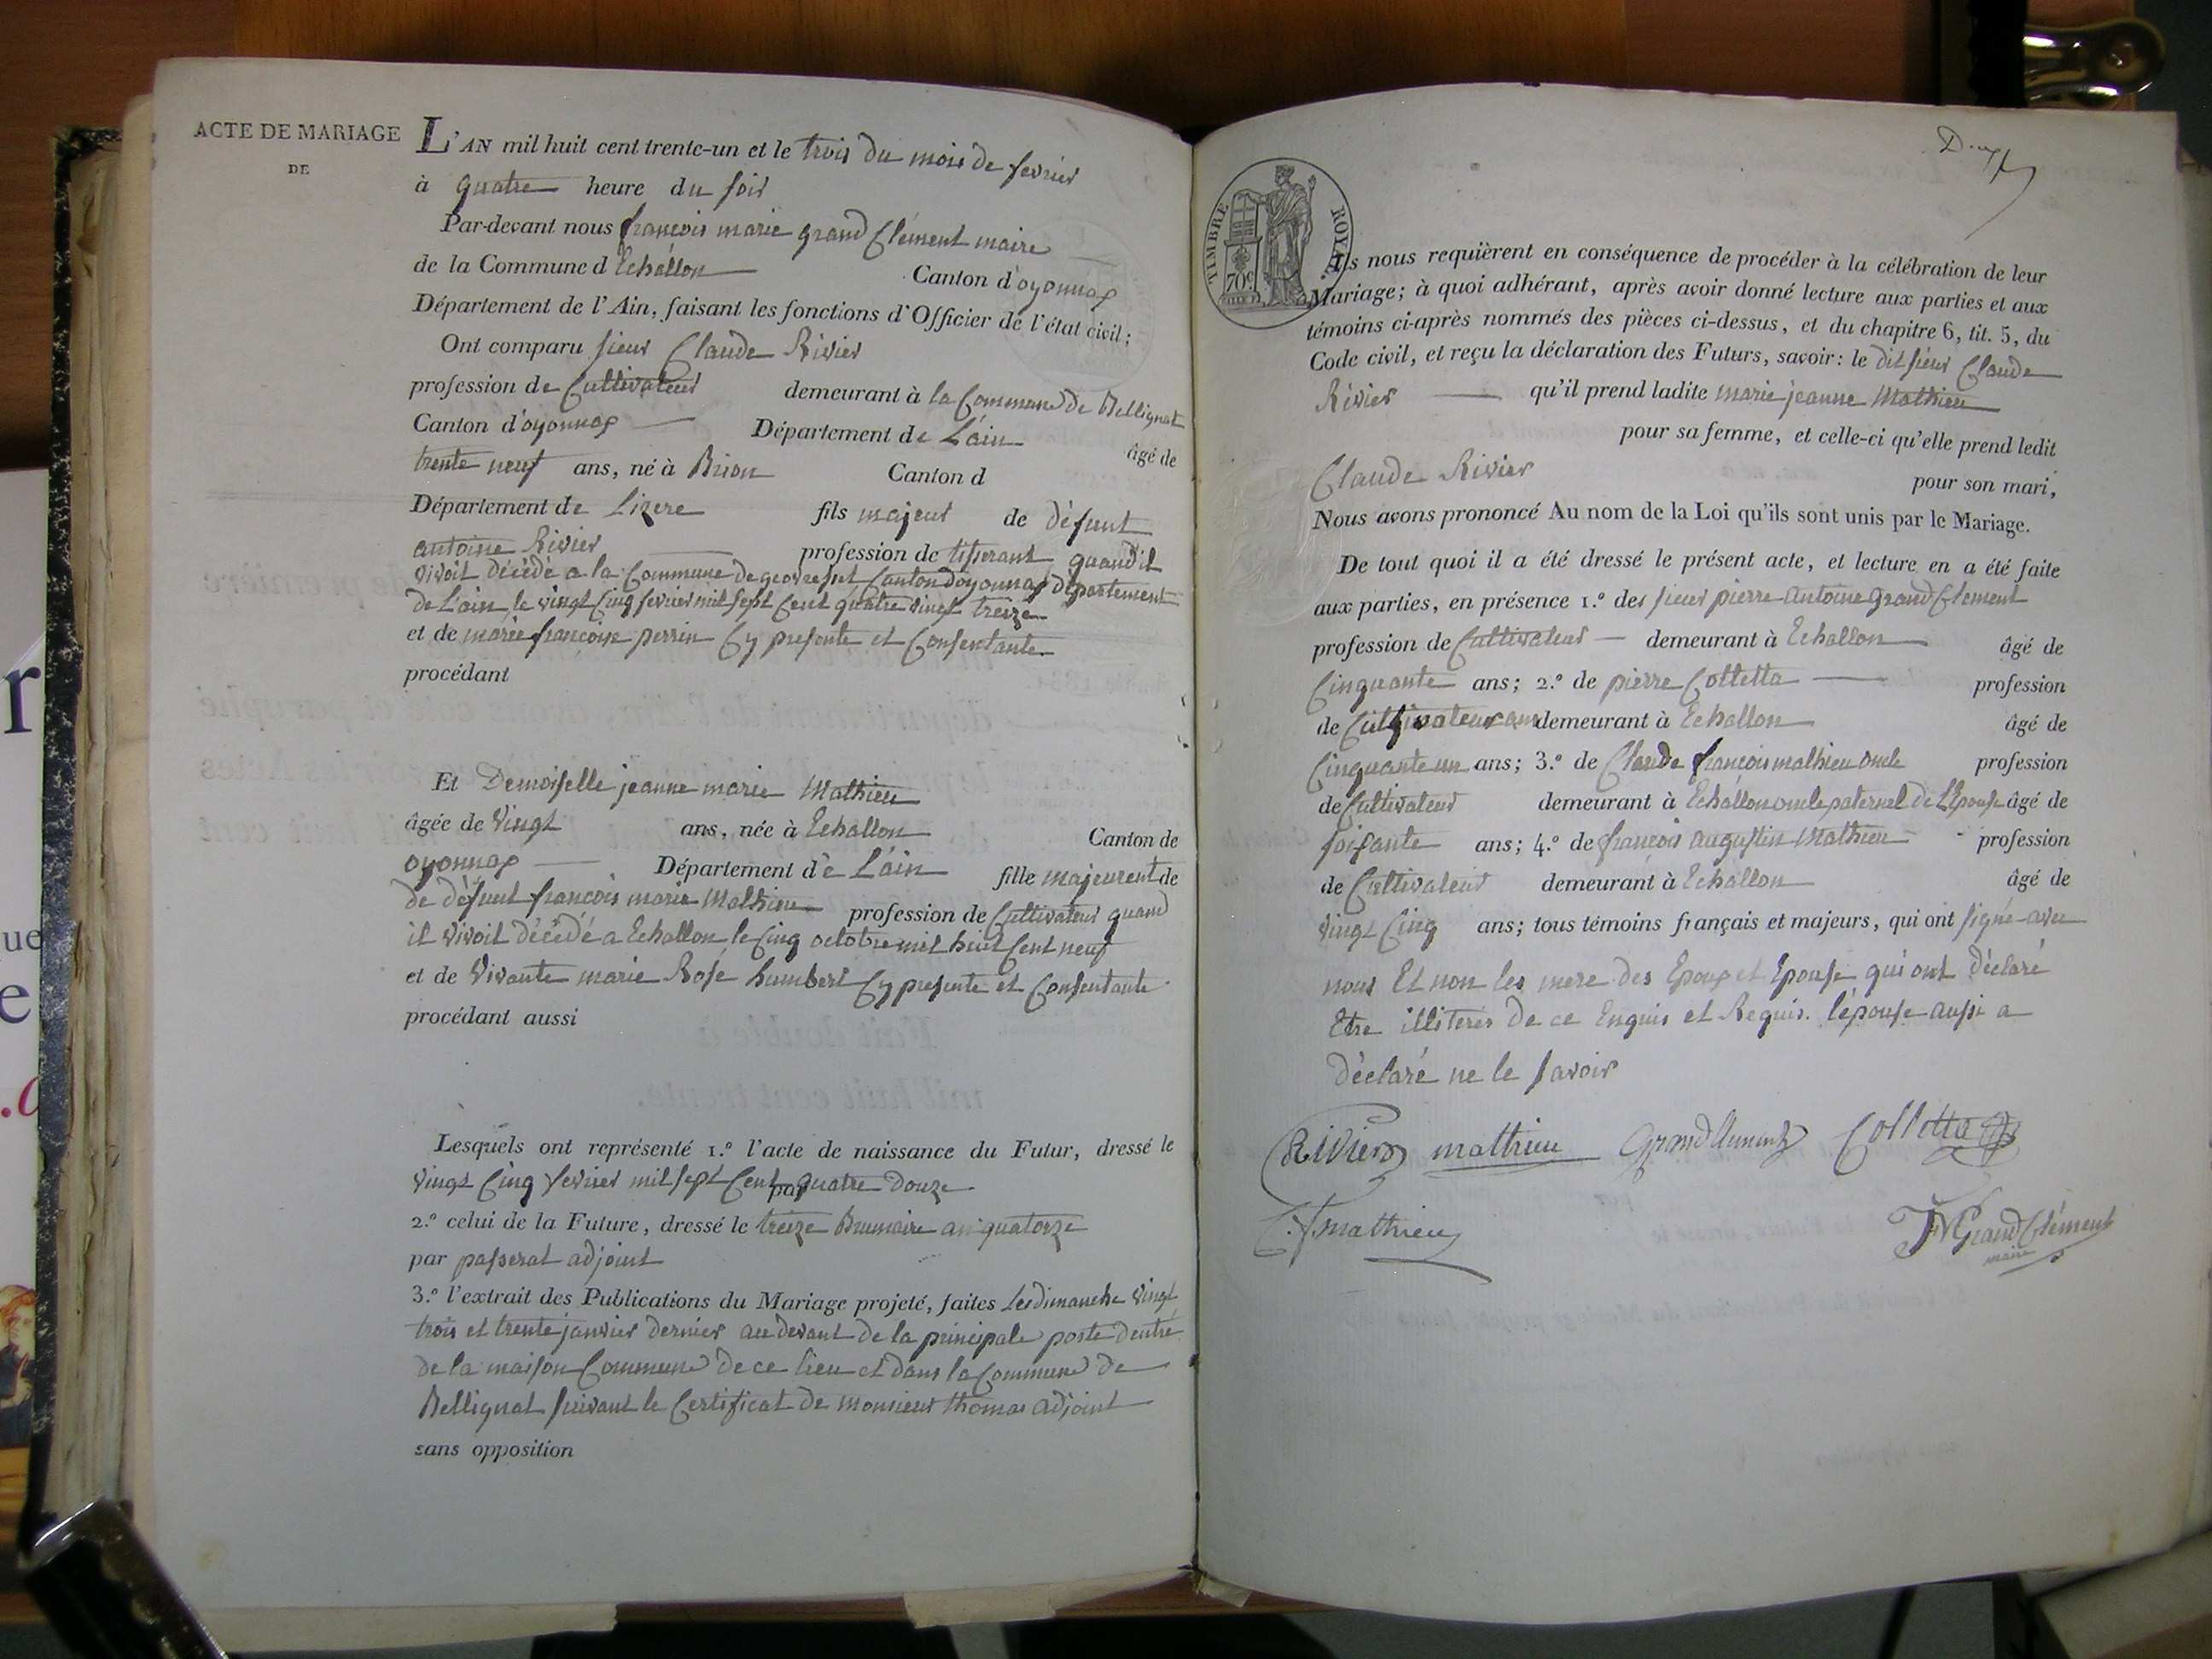 ACTE DE MARIAGE
DE
L'AN mil huit cent trente-un et le trois du mois de fevrier
à quatre heure du soir
Par-devant nous françois marie grand Clément maire
de la Commune d Echallon Canton d'oyonnax
Département de l'Ain, faisant les fonctions d'Officier de l'état civil;
Ont comparu sieur Claude Rivier
profession de Cultivateur demeurant à la Commune de Bellignat
Canton d'oyonnax Département de L'ain âgé de
trente neuf ans, né à Brion Canton d
Département de Lizere fils majeur de défunt
antoine Rivier profession de tisserant quand il
vivoit décédé a la Commune de geovresset Canton doyonnax département
de L'ain le vingt Cinq fevrier mil sept Cent quatre vingt treize
et de marie françoise perrin Cy presente et Consentante
procédant
Et Demoiselle jeanne marie Mathieu
âgée de Vingt ans, née à Echallon Canton de
oyonnax Département de L'ain fille majeure de
de défunt françois marie Mathieu profession de Cultivateur quand
il vivoit décédé a Echallon le Cinq octobre mil huit Cent neuf
et de Vivante marie Rose humbert Cy presente et Consentante
procédant aussi
Lesquels ont représenté 1.º l'acte de naissance du Futur, dressé le
vingt Cinq fevrier mil sept Cent quatre douze
par
2.º celui de la Future, dressé le treize Brumaire an quatorze
par passerat adjoint
3.º l'extrait des Publications du Mariage projeté, faites Les dimanche Vingt
trois et trente janvier dernier au devant de la principale porte dentré
de la maison Commune de ce lieu et dans la Commune de
Bellignat suivant le Certificat de monsieur thomas adjoint
sans opposition
TIMBRE ROYAL
70c
Ils nous requièrent en conséquence de procéder à la célébration de leur
Mariage; à quoi adhérant, après avoir donné lecture aux parties et aux
témoins ci-après nommés des pièces ci-dessus, et du chapitre 6, tit. 5, du
Code civil, et reçu la déclaration des Futurs, savoir: le dit sieur Claude
Rivier qu'il prend ladite marie jeanne Mathieu
pour sa femme, et celle-ci qu'elle prend ledit
Claude Rivier pour son mari,
Nous avons prononcé Au nom de la Loi qu'ils sont unis par le Mariage.
De tout quoi il a été dressé le présent acte, et lecture en a été faite
aux parties, en présence 1.º des sieur pierre antoine grand Clement
profession de Cultivateur demeurant à Echallon âgé de
Cinquante ans; 2.º de pierre Colletta profession
de Cultivateur demeurant à Echallon âgé de
Cinquante un ans; 3.º de Claude françois mathieu oncle profession
de Cultivateur demeurant à Echallon oncle paternel de L'Epouse âgé de
soixante ans; 4.º de françois augustin Mathieu profession
de Cultivateur demeurant à Echallon âgé de
vingt Cinq ans; tous témoins français et majeurs, qui ont signé avec
nous Et non les mere des Epoux et Epouse qui ont déclaré
Etre illiteres de ce Enquis et Requis. l'épouse aussi a
déclaré ne le savoir
Rivier mathieu grand Clement Colletta
C. f. mathieu FM Grand Clément
maire